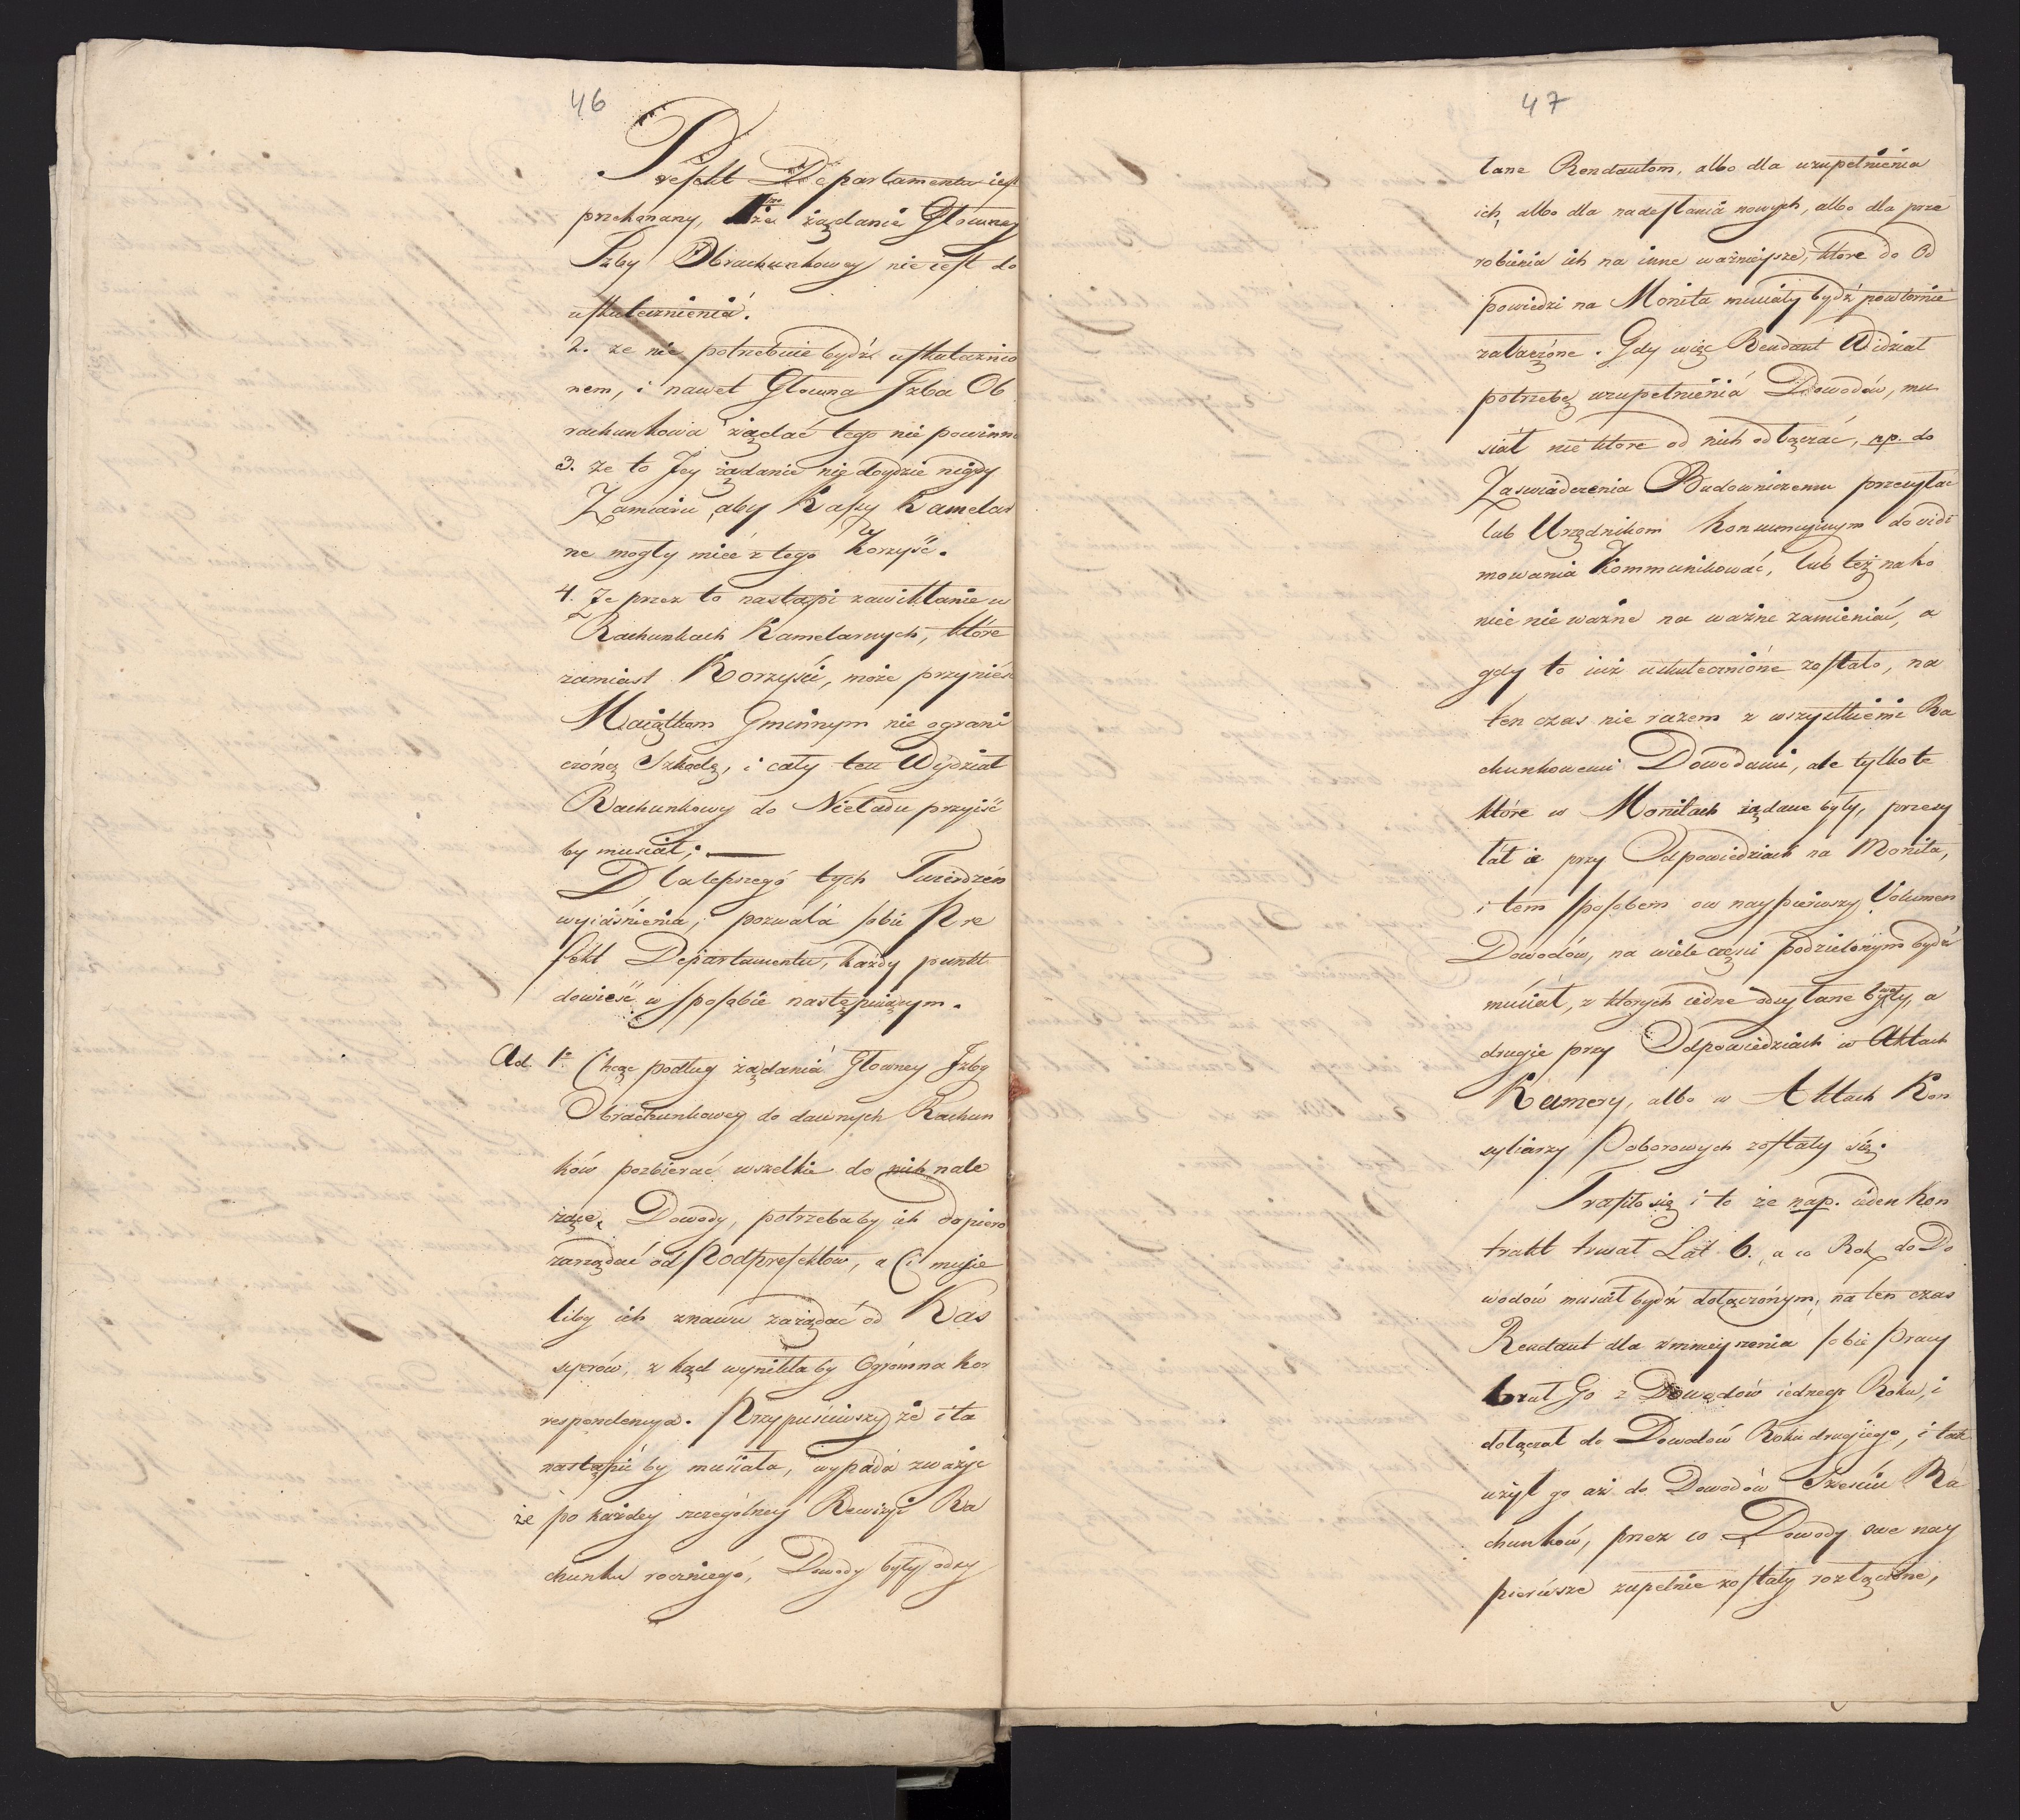 46
Prefekt Departamentu iest
przekonany, 1mo że żądanie Głowney
Izby Obrachunkowey nie iest do
uskutecznienia.
2. że nie potrzebuie bydź uskutecznio
nem, i nawet Głowna Izba Ob
rachunkowa żądać tego nie powinna
3. że to Jey żądanie nie doydzie nigdy
Zamiaru, aby Kassy Kamelar
ne mogły mieć z tego Korzyść.
4. Że przez to nastąpi zawikłanie w
Rachunkach Kamelarnych, które
zamiast Korzyści, może przynieść
Maiątkom Gminnym nie ograni
czóną Szkodę, i cały ten Wydział
Rachunkowy do Nieładu przyiść
by musiał; —
Dla lepszego tych Twierdzeń
wyiaśnienia, pozwala sobie Pre
fekt Departamentu, każdy punkt
dowieść w sposobie następuiącym.
Ad. 1o Chcąc podług żądania Głowney Izby
Obrachunkowey do dawnych Rachun
ków pozbierać wszelkie do nich nale
żące Dowody, potrzebaby ich dopiero
zarządać od Podprefektów, a Ci musie
liby ich znowu zażądać od Kas
syerów, z kąd wynikłaby Ogromna Kor
respondencya. Przypuściwszy że i ta
nastąpić by musiała, wypada zważyć
że po każdey szczególney Rewizyi Ra
chunku rocznego, Dowody były odsy
47
łane Rendantom, albo dla uzupełnienia
ich, albo dla nadesłania nowych, albo dla prze
robienia ich na inne ważnieysze, które do Od
powiedzi na Monita musiały bydź powtórnie
załączone. Gdy więc Rendant Widział
potrzebę uzupełnienia Dowodów, mu
siał nie które od nich odłączać, np. do
Zaswiadczenia Budowniczemu przesyłać
lub Urzędnikom Konsumcyinym do widi
mowania Kommunikować, lub też na ko
niec nie ważne na ważne zamieniać, a
gdy to iuż uskutecznióne zostało, na
ten czas nie razem z wszystkiemi Ra
chunkowemi Dowodami, ale tylko te
które w Monitach żądane były, przesy
łał ie przy Odpowiedziach na Monita,
i tem sposobem ow naypierwszy Volumen
Dowodów, na wiele części podzielonym bydź
musiał, z ktorych iedne odsyłane bywały, a
drugie przy Odpowiedziach w Aktach
Kamery, albo w Aktach Kon
syliarzy Poborowych zostały się.
Trafiło się i to że nap. ieden Kon
trakt trwał Lat 6. a co Rok do Do
wodów musiał bydź dołączónym, na ten czas
Rendant dla zmnieyszenia sobie pracy
brał Go z Dowodów iednego Roku, i
dołączał do Dowodów Roku drugiego, i tak
użył go aż do Dowodów Szesciu Ra
chunków, przez co Dowody owe nay
pierwsze zupełnie zostały rozłączóne,